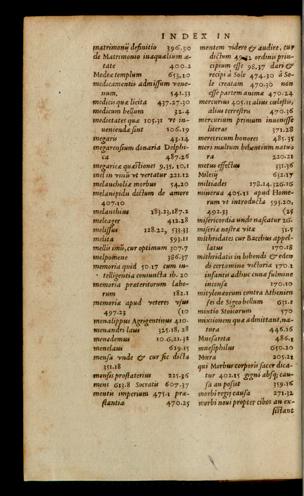 INDEX IN
matrimonij definitio 396.50
de Matrimonio inæqualium æ-
tate 400.2
Medeæ templum 653.10
medicamentis admissum vene-
num, 541.53
medicis quæ licita 437.27.30
medicum bellum 32.4
medietates quæ 105.31 vt in-
ueniendæ sint 106.19
megaris 43.14
megarensium denaria Delphi-
ca 487.26
megaricæ quæstiones 9.35, 10.1
mel in vinū vt vertatur 221.12
melancholiæ morbus 54.20
melanipidis dictum de amore
407.10
melanthius 183.23, 187.2
meleager 412.28
melissus 128.22, 533.33
melita 593.11
mellis imū, cur optimum 307.7
melpomene 386.37
memoria quid 50.17 cum in-
telligentia coniuncta ib. 20
memoria præteritorum labo-
rum 182.1
memoria apud veteres vsus
497.23 (10
menalippus Agrigentinus 410.
menandri laus 325.18, 28
menedemus 10.6, 21.32
menelaus 629.15
mensa vnde & cur sic dicta
351.18
mensis prostaterius 225.36
mens 613.8 Socratis 607.37
mentis imperium 475.1 præ-
stantia 470.25
mentem videre & audire, cuius
dictum ordinis prin-
cipium esse 98.37 dari &
recipi à Sole 474.30 à So-
le creatam 470.30 non
esse partem animæ 470.24
mercurius 405.11 alius cælestis,
alius terrestris 470.36
mercurium primum inuenisse
literas 371.28
mercurium honores 485.35
meri multum bibentium natura
220.21
metus effectus 311.36
632.17
miltiades 178.14, 326.16
minerua 405.11 apud Home-
rum vt introducta 595.20,
492.33 (25
misericordia vnde nascatur 26.
miseria nostræ vitæ 31.7
mithridates cur Bacchus appel-
latus 170.18
mithridatis in bibendo & edendo
de certamine victoria 170.1
infantis adhuc cunæ fulmine
incensæ 170.10
mitylenæorum contra Athenien
ses de Sigeo bellum 631.1
mixtio Stoicorum 370
mixtionem quæ admittant, na-
tura 446.26
Mnesareta 486.1
mnesiphilus 650.20
Mœra 205.21
qui Morbus corporis sacer dica-
tur 402.15 gigni absq; cau-
sa an possit 359.36
morbi regij causa 271.32
morbi noui propter cibos an ex-
sistant